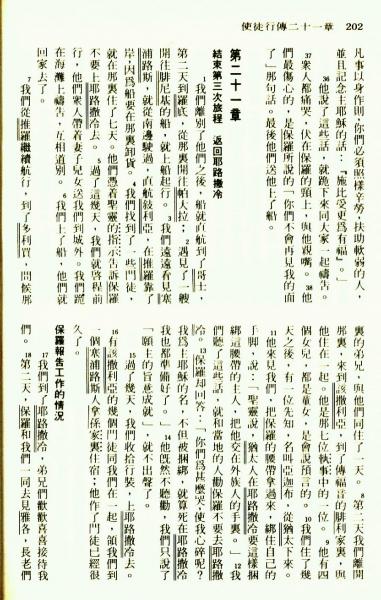 使徒行傳二十一章 202
凡事以身作則,你們必須照樣辛勞,扶助軟弱的人,
並且記念主耶穌的話:『施比受更爲有福』。」
36他說了這些話,就跪下來同大家一起禱告。
37衆人都痛哭,伏在保羅的頸上,與他親嘴。38他
們最傷心的,是保羅所說的「你們不會再見我的面
了」那句話。最後他們送他上了船。
第二十一章
結束第三次旅程 返回耶路撒冷
1我們離別了他們之後,船就直航到了哥士,
第二天到羅底,從那裏開往帕大拉;2遇見了一艘
開往腓尼基的船,就上船起行。3我們遠遠看見塞
浦路斯,就從南邊駛過,直航敍利亞,在推羅靠了
岸,因爲船要在那裏卸貨。4我們找到了一些門徒,
就在那裏住了七天。他們憑着聖靈的指示告訴保羅
不要上耶路撒冷去。5過了這幾天,我們就啓程前
行,他們衆人帶着妻子兒女送我們到城外。我們跪
在海灘上禱告,互相道別。6我們上了船,他們就
回家去了。
7我們從推羅繼續航行,到了多利買,問候那
裏的弟兄,與他們同住了一天。8第二天我們離開
那裏,來到該撒利亞,到了傳福音的腓利家裏,與
他住在一起。他是那七位執事中的一位。9他有四
個女兒,都是童女,是會說預言的。10我們住了幾
天之後,有一位先知,名叫亞迦布,從猶太下來。
11他來見我們,把保羅的腰帶拿過來,綁住自己的
手脚,說:「聖靈說,『猶太人在耶路撒冷要這樣捆
綁這腰帶的主人,把他交在外族人的手裏。』」12我
們聽了這些話,就和當地的人勸保羅不要去耶路撒
冷。13保羅却回答:「你們爲甚麼哭,使我心碎呢?
我爲主耶穌的名,不但被捆綁,就算死在耶路撒冷
我也都準備好了。」14他旣然不聽勸,我們只說了
「願主的旨意成就」,就不出聲了。
15過了幾天,我們收拾行裝,上耶路撒冷去。
16有該撒利亞的幾個門徒同我們在一起,領我們到
一個塞浦路斯人拿孫家裏住宿;他作了門徒已經很
久了。
保羅報告工作的情況
17我們到了耶路撒冷,弟兄們歡歡喜喜接待我
們。18第二天,保羅和我們一同去見雅各,長老們